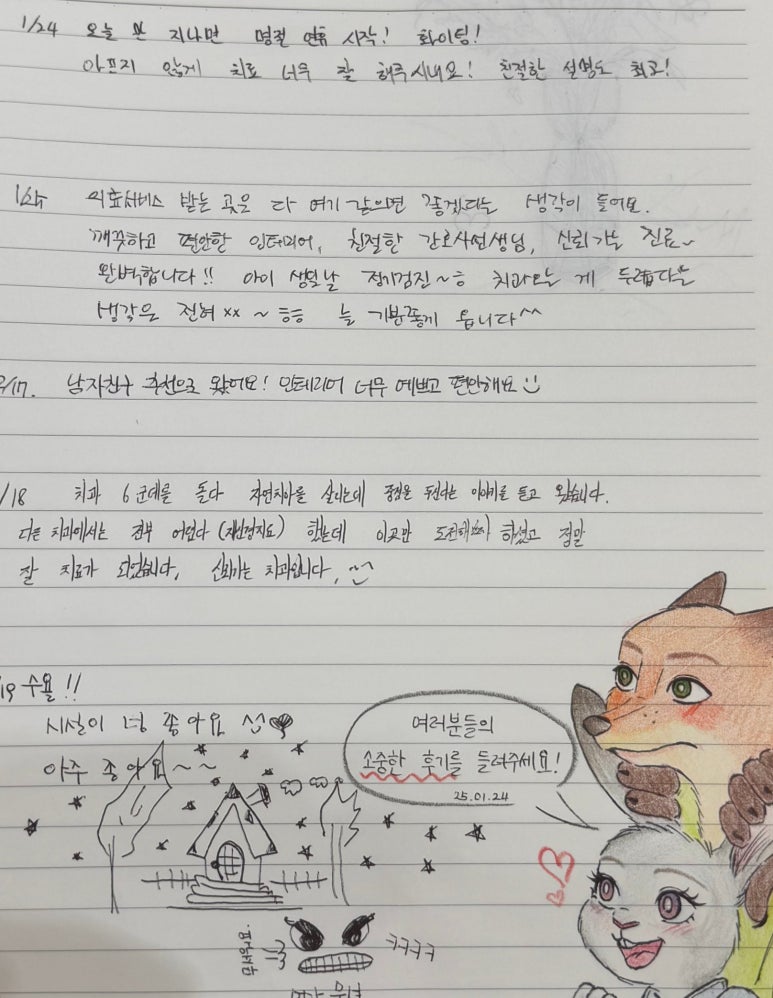 1/24 오늘 만 지나면 명절 연휴 시작! 화이팅!
아프지 않게 치료 너무 잘 해주시내요! 친절한 설명도 최고!
1/25 의료서비스 받는 곳은 다 여기 같으면 좋겠다는 생각이 들어요.
깨끗하고 편안한 인테리어, 친절한 간호사선생님, 신뢰가는 진료~
완벽합니다!! 아이 생일날 정기검진~ㅎ 치과오는 게 두렵다는
생각은 전혀 xx ~ ㅎㅎ 늘 기분좋게 옵니다^^
2/17. 남자친구 추천으로 왔어요! 인테리어 너무 예쁘고 편안해요
/18 치과 6군데를 돌다 자연치아를 살리는데 중점을 두신다는 이야기를 듣고 왔습니다.
다른 치과에서는 전부 어렵다 (재신경치료) 했는데 이교만 도전해보자 하셨고 정말
잘 치료가 되었습니다, 신뢰가는 치과입니다.
/19 수욜!!
시설이 넝 좋아요
아주 좋아요~~
여러분들의
소중한 후기를 들려주세요!
25.01.24
ㅋㅋㅋㅋ